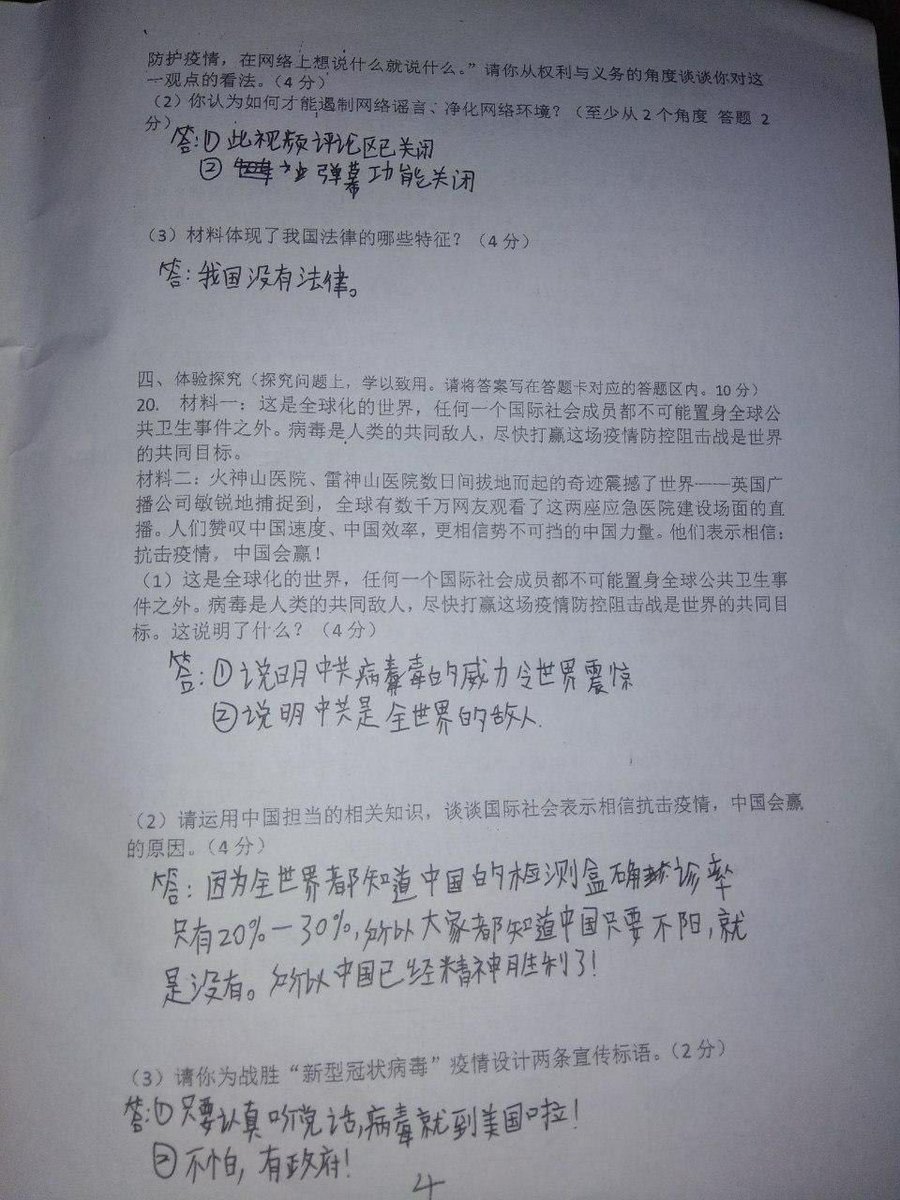 防护疫情，在网络上想说什么就说什么。”请你从权利与义务的角度谈谈你对这
一观点的看法。（4 分）
（2）你认为如何才能遏制网络谣言、净化网络环境？（至少从 2 个角度 答题 2
分）
答：① 此视频评论区已关闭
② 弹幕功能关闭
（3）材料体现了我国法律的哪些特征？（4 分）
答：我国没有法律。
四、体验探究（探究问题上，学以致用。请将答案写在答题卡对应的答题区内。10 分）
20. 材料一：这是全球化的世界，任何一个国际社会成员都不可能置身全球公
共卫生事件之外。病毒是人类的共同敌人，尽快打赢这场疫情防控阻击战是世界
的共同目标。
材料二：火神山医院、雷神山医院数日间拔地而起的奇迹震撼了世界——英国广
播公司敏锐地捕捉到，全球有数千万网友观看了这两座应急医院建设场面的直
播。人们赞叹中国速度、中国效率，更相信势不可挡的中国力量。他们表示相信：
抗击疫情，中国会赢！
（1）这是全球化的世界，任何一个国际社会成员都不可能置身全球公共卫生事
件之外。病毒是人类的共同敌人，尽快打赢这场疫情防控阻击战是世界的共同目
标。这说明了什么？（4 分）
答：① 说明中共病毒的威力令世界震惊
② 说明中共是全世界的敌人.
（2）请运用中国担当的相关知识，谈谈国际社会表示相信抗击疫情，中国会赢
的原因。（4 分）
答：因为全世界都知道中国的检测盒确诊率
只有20%—30%，所以大家都知道中国只要不阳，就
是没有。所以中国已经精神胜利了！
（3）请你为战胜“新型冠状病毒”疫情设计两条宣传标语。（2 分）
答：① 只要认真听党话，病毒就到美国啦！
② 不怕，有政府！
4